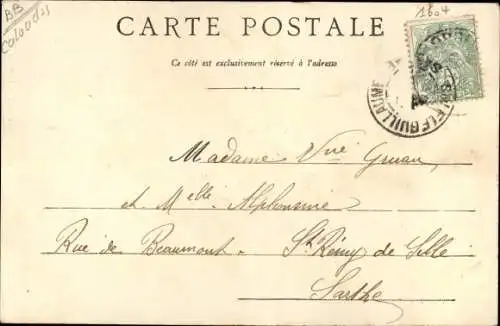 BB
Calvados
1804
CARTE POSTALE
Ce côté est exclusivement réservé à l'adresse
GUILLAUME
Madame Vve Gruau
et Melle Alphonsine
Rue de Beaumont. St Rémy de Sille
Sarthe